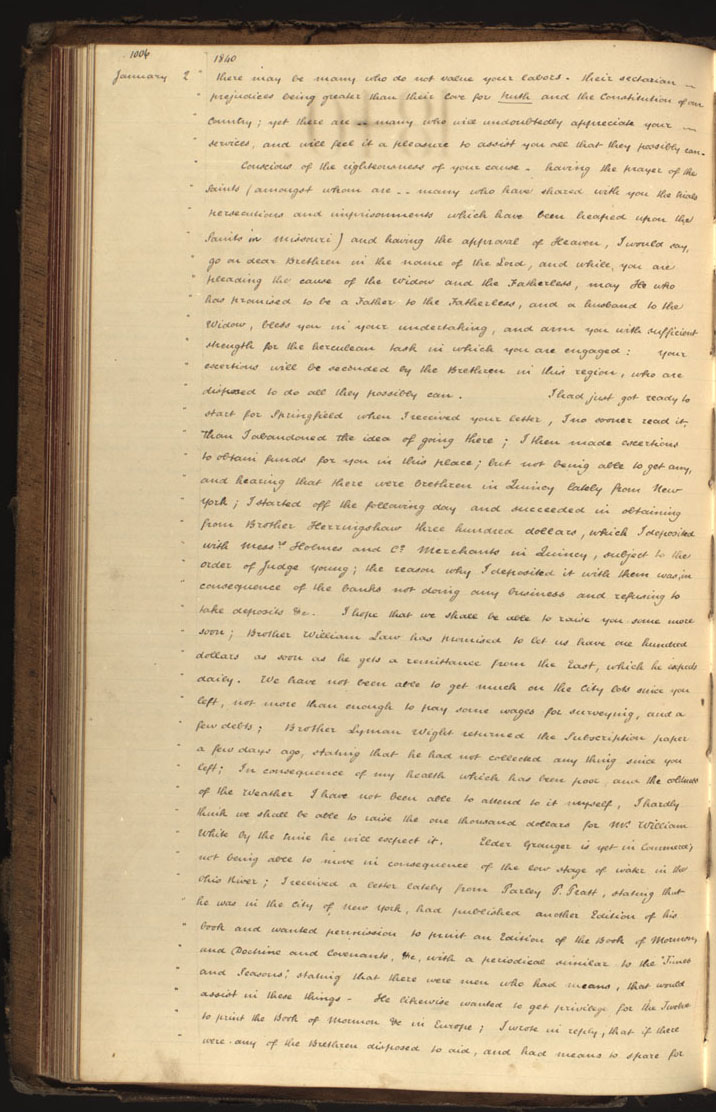 1006 1840
January 2 " there may be many who do not value your labors - their sectarian —
" prejudices being greater than their love for truth and the Constitution of our
" Country; yet there are — many who will undoubtedly appreciate your —
" services, and will feel it a pleasure to assist you all that they possibly can.
" Conscious of the righteousness of your cause - having the prayer of the
" Saints (amongst whom are -- many who have shared with you the trials
" persecutions and imprisonments which have been heaped upon the
" Saints in Missouri) and having the approval of Heaven, I would say,
" go on dear Brethren in the name of the Lord, and while you are
" pleading the cause of the Widow and the Fatherless, may He who
" has promised to be a Father to the Fatherless, and a husband to the
" Widow, bless you in your undertaking, and arm you with sufficient
" strength for the herculean task in which you are engaged: your
" exertions will be seconded by the Brethren in this region, who are
" disposed to do all they possibly can. I had just got ready to
" start for Springfield when I received your letter, I no sooner read it
" than I abandoned the idea of going there; I then made exertions
" to obtain funds for you in this place; but not being able to get any,
" and hearing that there were brethren in Quincy lately from New
" York; I started off the following day and succeeded in obtaining
" from Brother Herringshaw three hundred dollars, which I deposited
" with Messrs Holmes and Co. Merchants in Quincy, subject to the
" order of Judge Young; the reason why I deposited it with them was, in
" consequence of the banks not doing any business and refusing to
" take deposits &c. I hope that we shall be able to raise you some more
" soon; Brother William Law has promised to let us have one hundred
" dollars as soon as he gets a remittance from the East, which he expects
" daily. We have not been able to get much on the City lots since you
" left, not more than enough to pay some wages for surveying, and a
" few debts; Brother Lyman Wight returned the Subscription paper
" a few days ago, stating that he had not collected any thing since you
" left; In consequence of my health which has been poor, and the coldness
" of the Weather I have not been able to attend to it myself, I hardly
" think we shall be able to raise the one thousand dollars for Mr. William
" White by the time he will expect it. Elder Granger is yet in Commerce,
" not being able to move in consequence of the low stage of water in the
" Ohio River; I received a letter lately from Parley P. Pratt, stating that
" he was in the City of New York, had published another Edition of his
" book and wanted permission to print an Edition of the Book of Mormon,
" and Doctrine and Covenants, &c, with a periodical similar to the "Times
" and Seasons," stating that there were men who had means, that would
" assist in these things - He likewise wanted to get privilege for the Twelve
" to print the Book of Mormon &c in Europe; I wrote in reply, that if there
" were any of the Brethren disposed to aid, and had means to spare for